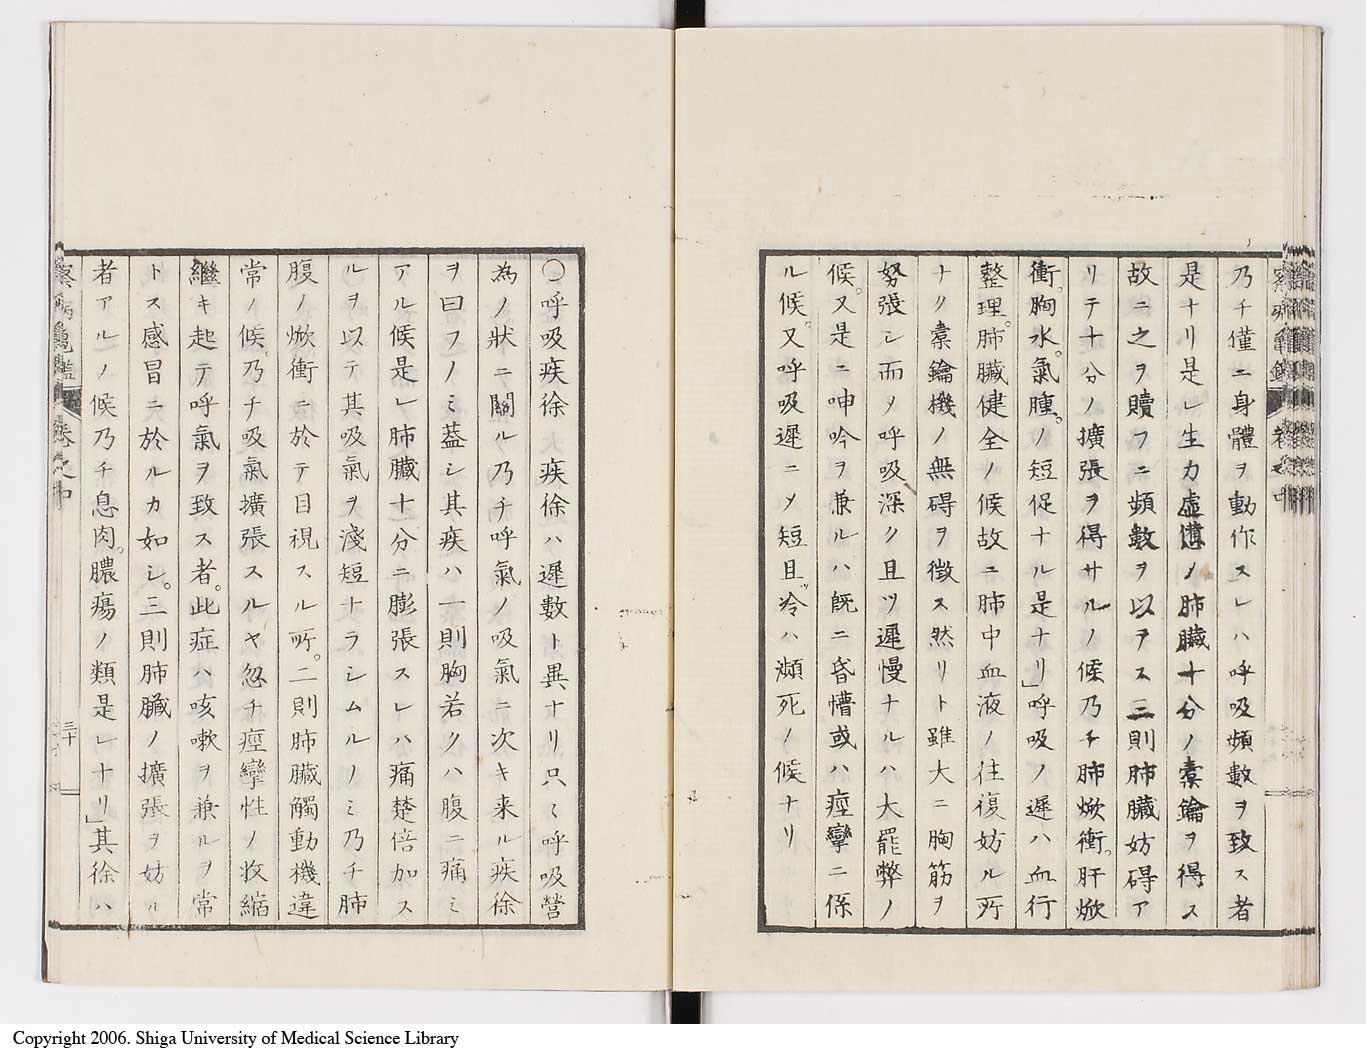 乃チ僅ニ身體ヲ動作スレハ呼吸頻數ヲ致ス者
是ナリ是レ生力虚憊メ肺臓十分ノ橐鑰ヲ得ス
故ニ之ヲ贖フニ頻數ヲ以ヲス三則肺臓妨碍ア
リテ十分ノ擴張ヲ得サルノ候乃チ肺焮衝。肝焮
衝。胸水。氣腫。ノ短促ナル是ナリ」呼吸ノ遲ハ血行
整理。肺臓健全ノ候故ニ肺中血液ノ往復妨ル所
ナク橐鑰機ノ無碍ヲ徴ス然リト雖大ニ胸筋ヲ
努張シ而メ呼吸深ク且ツ遲慢ナルハ大罷弊ノ
候。又是ニ呻吟ヲ兼ルハ既ニ昏懵或ハ痙攣ニ係
ル候。又呼吸遲ニメ短且ッ冷ハ瀕死ノ候ナリ
〇呼吸疾徐 疾徐ハ遲數ト異ナリ只〻呼吸營
為ノ狀ニ關ル乃チ呼氣ノ吸氣ニ次キ来ル疾徐
ヲ曰フノミ葢シ其疾ハ一則胸若クハ腹ニ痛ミ
アル候是」肺臓十分ニ膨張スレハ痛楚倍加ス
ルヲ以テ其吸氣ヲ淺短ナラシムルノミ乃チ肺
腹ノ焮衝ニ於テ目視スル所。二則肺臓觸動機違
常ノ候。乃チ吸氣擴張スルヤ忽チ痙攣性ノ收縮
繼キ起テ呼氣ヲ致ス者。此症ハ咳嗽ヲ兼ルヲ常
トス感冒ニ於ルカ如シ。三則肺臓ノ擴張ヲ妨ル
者アルノ候乃チ息肉。膿瘍ノ類是レナリ」其徐ハ
察病亀鑑 卷之中
三十
Copyright 2006. Shiga University of Medical Science Library